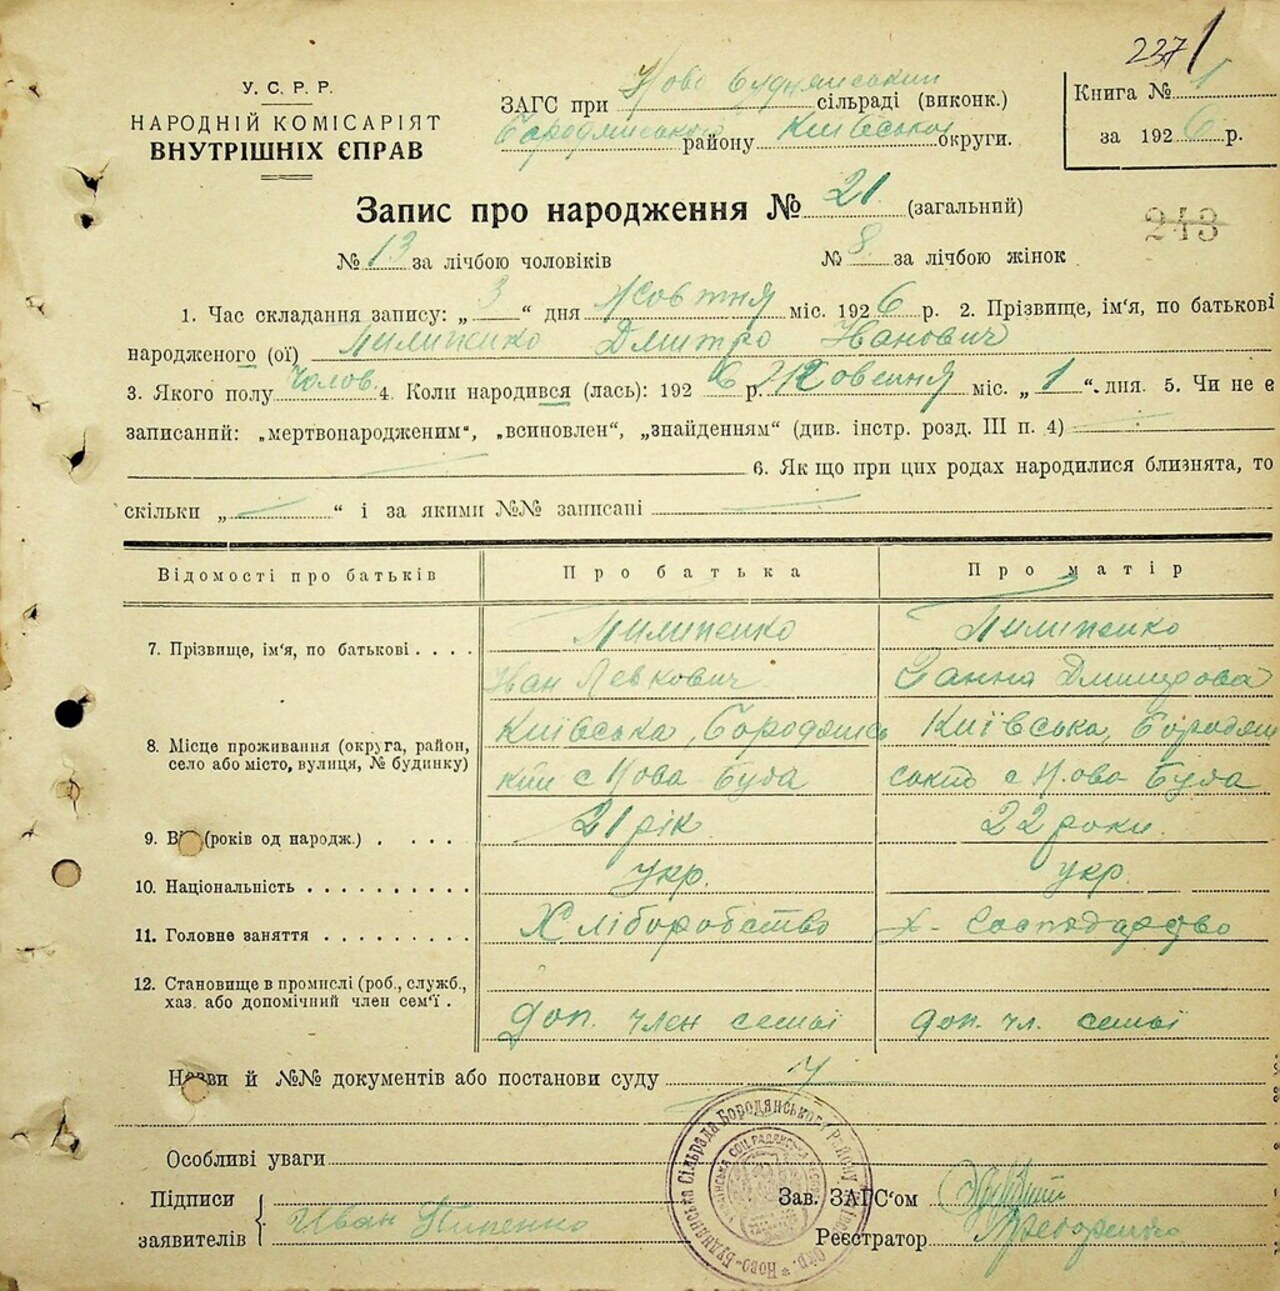 227 1
У. С. Р. Р.
НАРОДНІЙ КОМІСАРІЯТ
ВНУТРІШНІХ ЄПРАВ
ЗАГС при Ново Будянський сільраді (виконк.)
Бородянського району Київської округи.
Книга № 1
за 1926 р.
Запис про народження № 21 (загальний)
243
№ 13 за лічбою чоловіків № 8 за лічбою жінок
1. Час складання запису: „ 3 “ дня Жовтня міс. 1926 р. 2. Прізвище, ім'я, по батькові
народженого (ої) Пилипенко Дмитро Іванович
3. Якого полу Чолов. 4. Коли народився (лась): 1926 р. міс. „ 1 “. дня. 5. Чи не є
записаний: „мертвонародженим“, „всиновлен“, „знайденням“ (див. інстр. розд. III п. 4)
6. Як що при цих родах народилися близнята, то
скільки „ “ і за якими №№ записані
Відомості про батьків Про батька Про матір
7. Прізвище, ім'я, по батькові . . . . Пилипенко Пилипенко
Іван Левкович Ганна Дмитрова
8. Місце проживання (округа, район, Київська, Бородянсь Київська, Бородян
село або місто, вулиця, № будинку) кий с Нова Буда с Нова Буда
9. Ві (років од народж.) . . . . 21 рік 22 роки.
10. Національність . . . . . . . . . . Укр. укр.
11. Головне заняття . . . . . . . . . Хліборобство х- господарство
12. Становище в промислі (роб., служб.,
хаз. або допомічний член сем'ї . доп. член семьї доп. чл. семьї
Назви й №№ документів або постанови суду
Особливі уваги
Підписи Зав. ЗАГС'ом
заявителів Иван Реєстратор
Ново-Буднянська Сільрада Бородянського Району Окр.